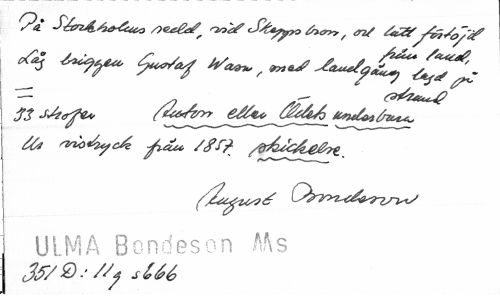 På Stockholms redd, vid Skeppsbron, och tätt förtöjd
från land,
Låg briggen Gustaf Wasa, med landgång lagd på
strand
33 strofer Anton eller Ödets underbara
Ur vistryck från 1857. skickelse.
August Bondeson
ULMA Bondeson Ms
351 D: 11 g s 666